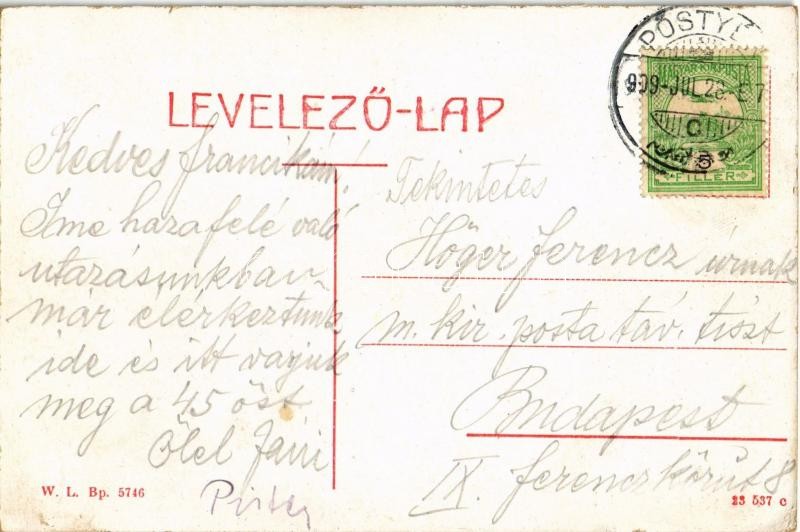 LEVELEZŐ-LAP
PŐSTYÉ
909-JUL.28
C
MAGYAR KIR. POSTA
5
FILLÉR
Kedves francikám!
Ime hazafelé való
utazásunkban
már elérkeztünk
ide és itt vagyunk
meg a 45 öst
Ölel Jani
Tekintetes
Höger Ferencz úrnak
m. kir. posta táv. tiszt
Budapest
IX. Ferenczkörút 8
W. L. Bp. 5746
23 537 c